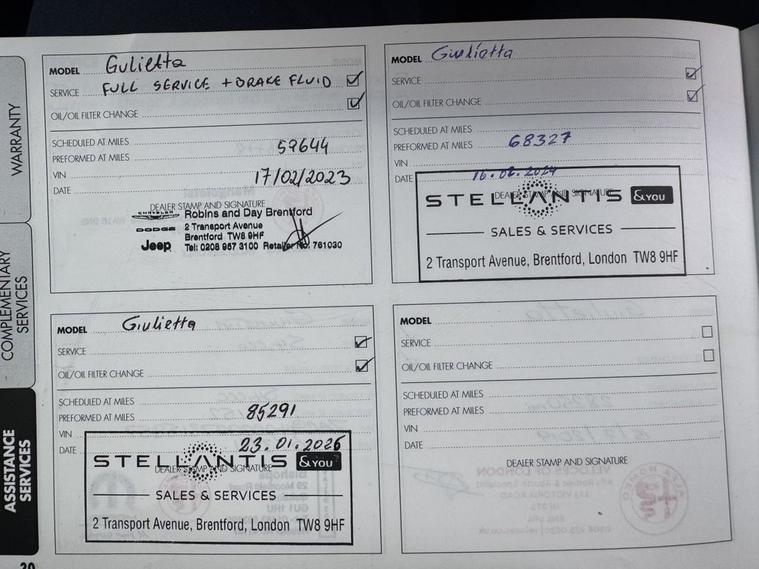 WARRANTY
COMPLEMENTARY
SERVICES
ASSISTANCE
SERVICES
MODEL Gulietta
SERVICE FULL SERVICE + BRAKE FLUID
OIL/OIL FILTER CHANGE
SCHEDULED AT MILES
PREFORMED AT MILES 59644
VIN
DATE 17/02/2023
DEALER STAMP AND SIGNATURE
CHRYSLER
DODGE
Jeep
Robins and Day Brentford
2 Transport Avenue
Brentford TW8 9HF
Tel: 0208 957 3100 Retailer No: 761030
MODEL Giulietta
SERVICE
OIL/OIL FILTER CHANGE
SCHEDULED AT MILES
PREFORMED AT MILES 68327
VIN
DATE 16.02.2024
DEALER STAMP AND SIGNATURE
STELLANTIS &YOU
SALES & SERVICES
2 Transport Avenue, Brentford, London TW8 9HF
MODEL Giulietta
SERVICE
OIL/OIL FILTER CHANGE
SCHEDULED AT MILES
PREFORMED AT MILES 85291
VIN
DATE 23.01.2026
DEALER STAMP AND SIGNATURE
STELLANTIS &YOU
SALES & SERVICES
2 Transport Avenue, Brentford, London TW8 9HF
MODEL
SERVICE
OIL/OIL FILTER CHANGE
SCHEDULED AT MILES
PREFORMED AT MILES
VIN
DATE
DEALER STAMP AND SIGNATURE